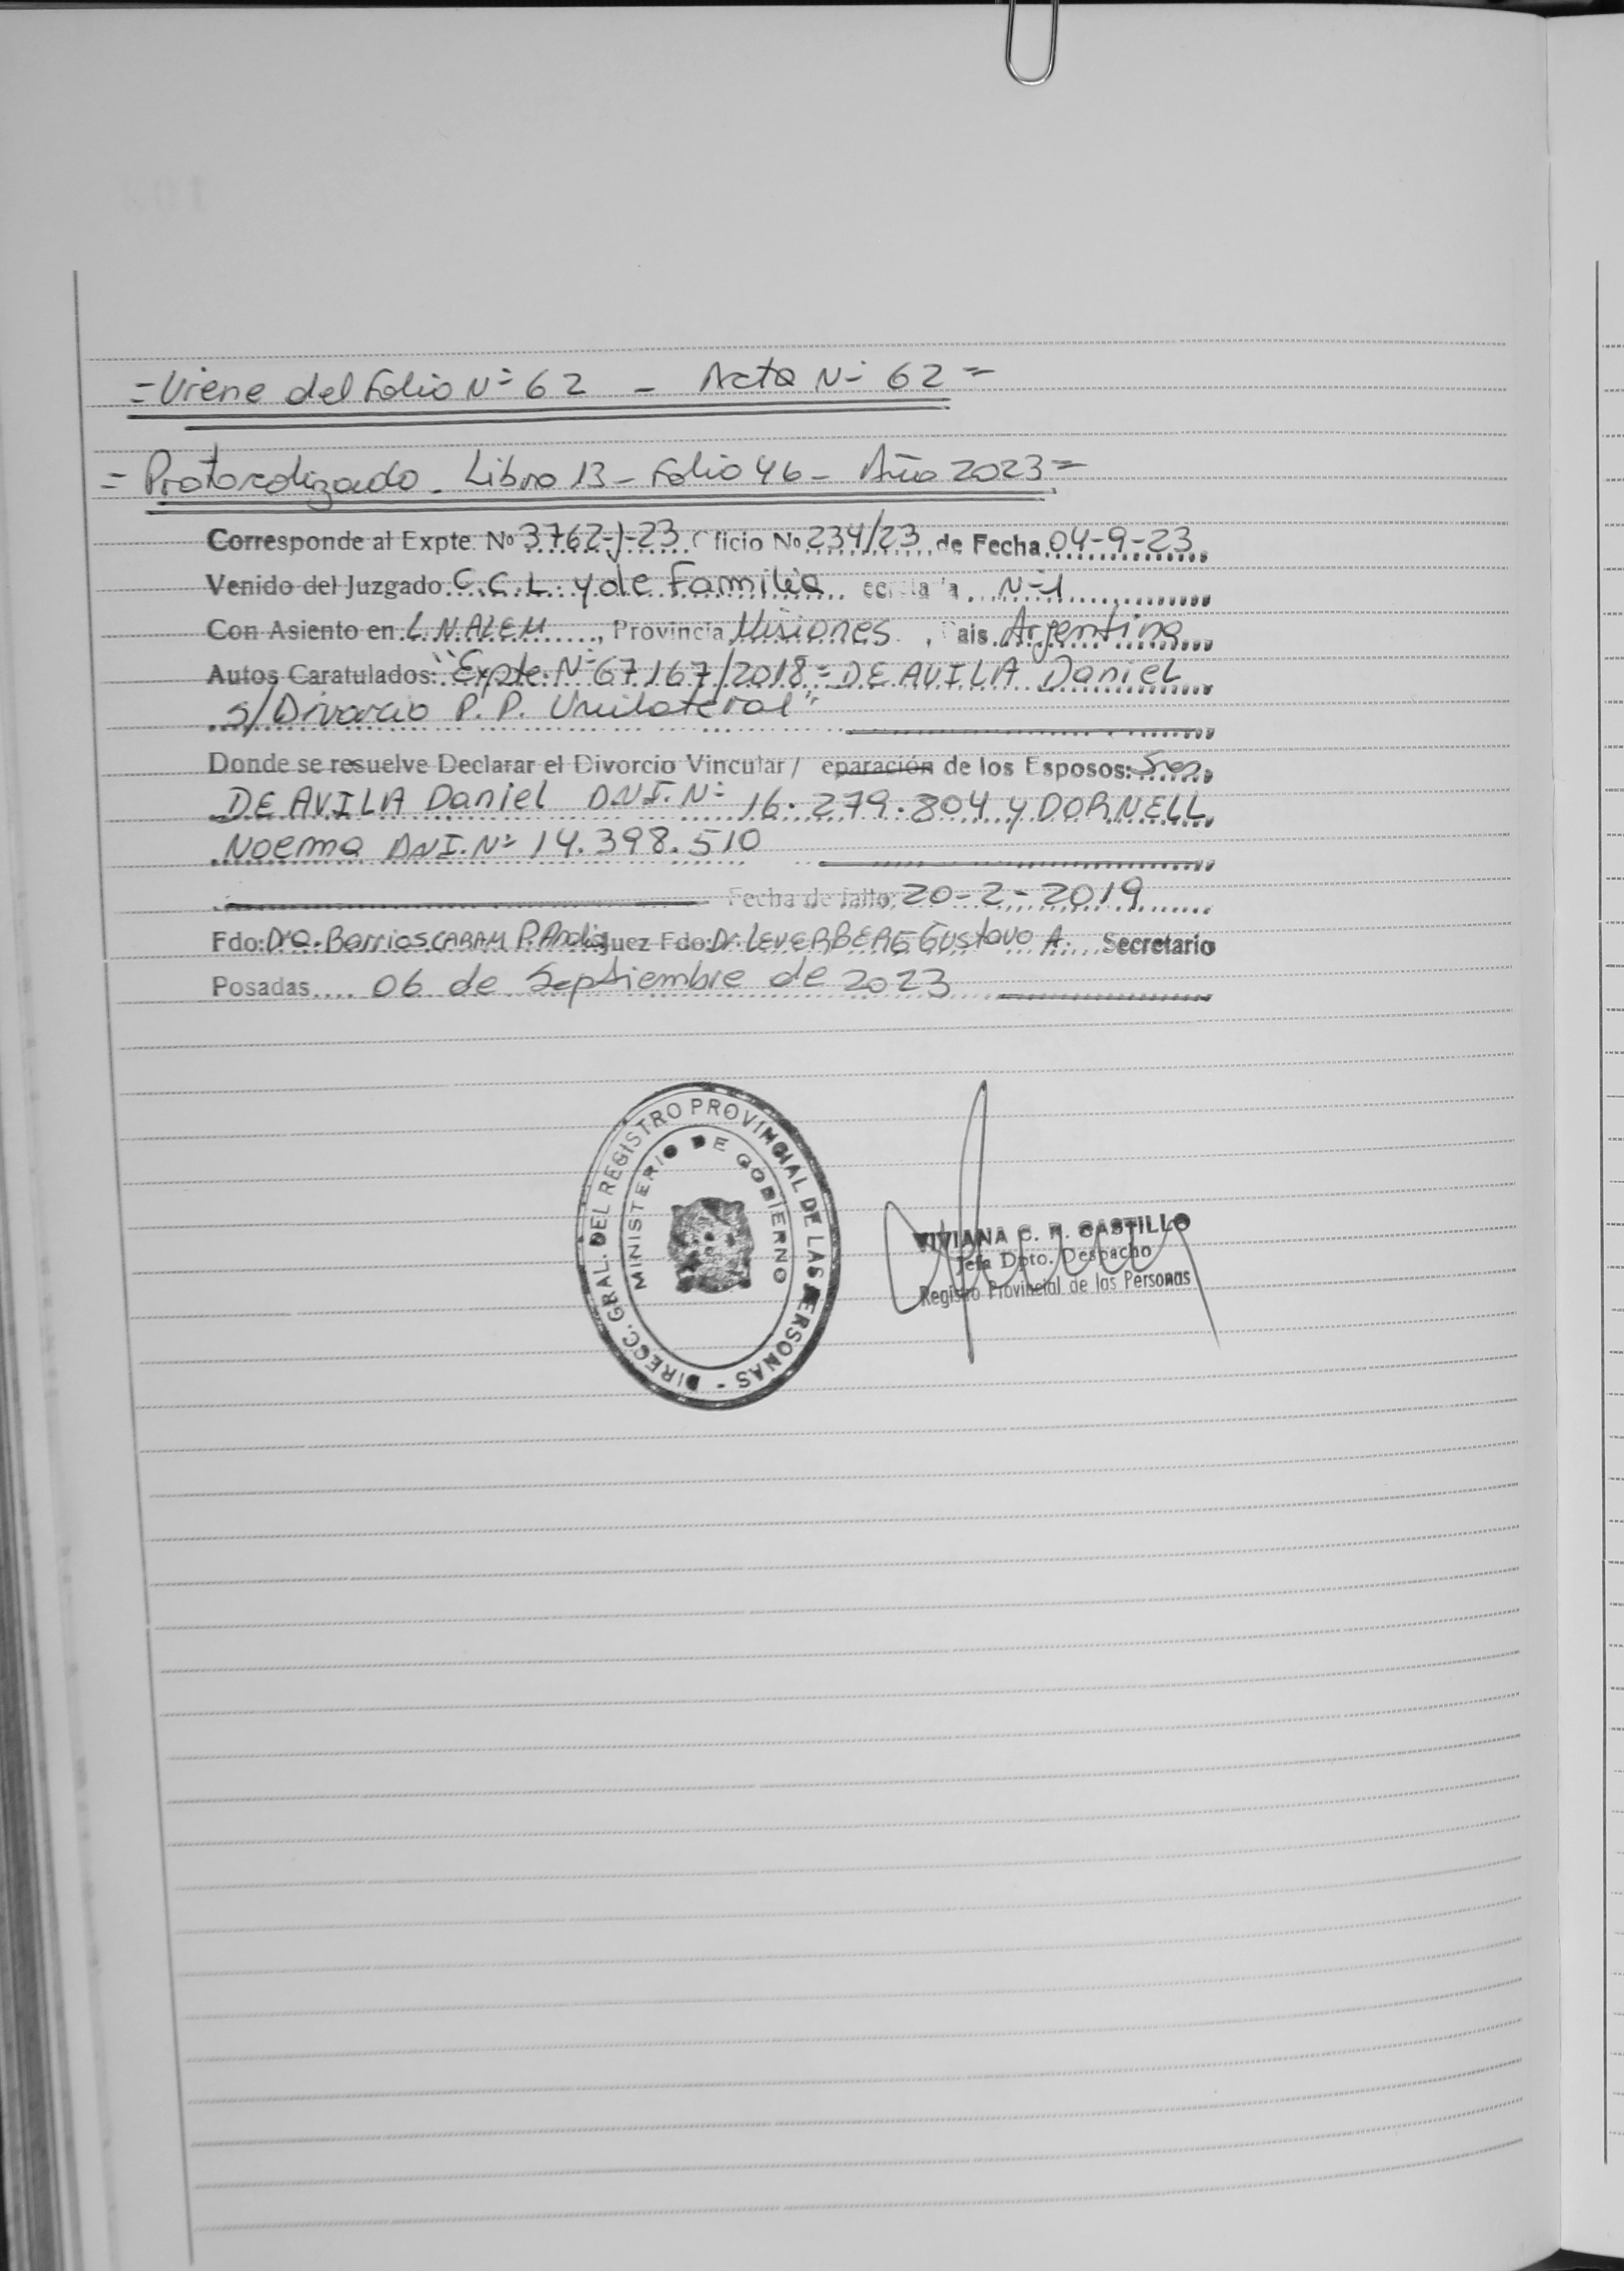 = Viene del Folio Nº 62 - Acta Nº 62 =
= Protocolizado - Libro 13 - Folio 46 - Año 2023 =
Corresponde al Expte. Nº 3762-J-23 Oficio Nº 234/23 de Fecha 04-9-23
Venido del Juzgado C.C.L. y de Familia Nº 1
Con Asiento en L.N.ALEM, Provincia Misiones, Pais Argentina
Autos Caratulados: "Expte. Nº 67167/2018 = DE AVILA Daniel
s/Divorcio P.P. Unilateral"
Donde se resuelve Declarar el Divorcio Vincular / eparación de los Esposos: Sres.
DE AVILA Daniel D.N.I. Nº 16.279.804 y DORNELL
Noema DNI. Nº 14.398.510
Fecha de fallo: 20-2-2019
Fdo: Dra. Barrios CARAM P. Juez Fdo: Dr. LEVERBERG Gustavo A. Secretario
Posadas 06 de Septiembre de 2023
DIRECC. GRAL. DEL REGISTRO PROVINCIAL DE LAS PERSONAS -
MINISTERIO DE GOBIERNO
VIVIANA C. R. CASTILLO
Jefa Dpto. Despacho
Registro Provincial de las Personas